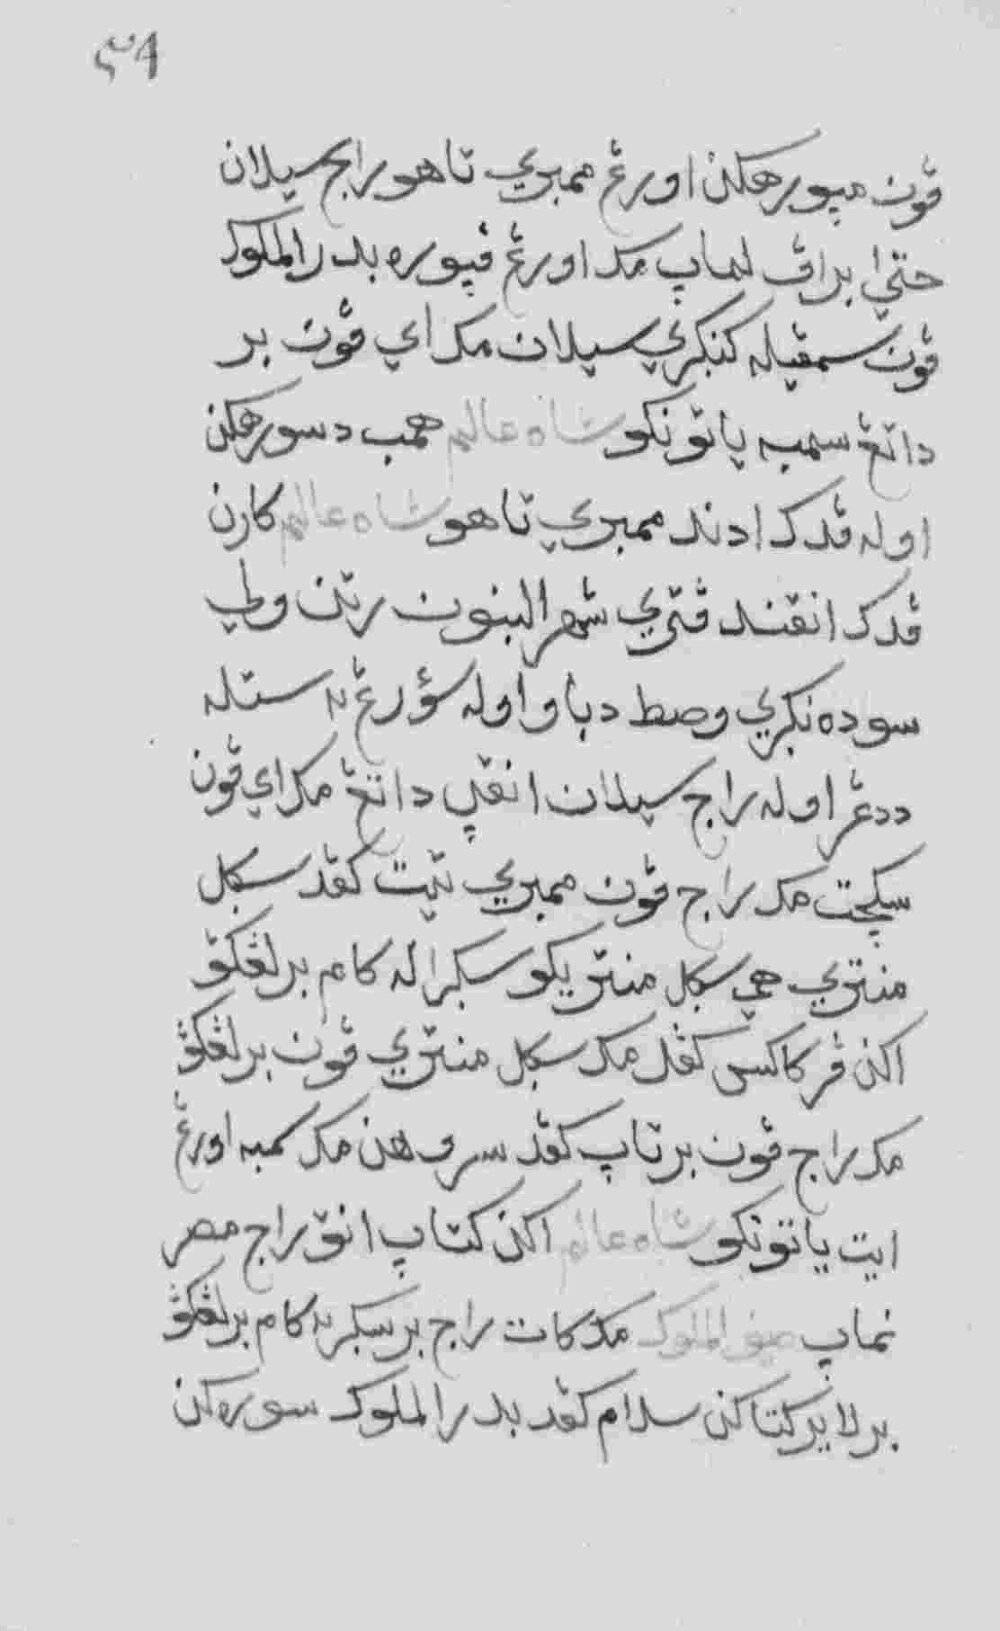 ٥٩
ڤون مپورهکن اورڠ ممبري تاهو راج سيلان
حتي براڤ لماپ مک اورڠ ڤپوره بدرالملوک
ڤون سمڤيله کنکري سيلان مک اي ڤون بر
داتڠ سمبه ياتونکو شاه عالم همب دسورهکن
اوله ڤدک ادند ممبري تاهو شاه عالم کارن
ڤدک انقند ڤتري شهرالبنون رتن ولي
سوده نکري وصط دباو اوله سؤرڠ
ددڠر اوله راج سيلان انقڽ داتڠ مک اي ڤون
سکچت مک راج ڤون ممبري تيته کڤد سکل
منتري هي سکل منتريکو سکراله کام برلڠکڤ
اکن ڤرکاکس کڤل مک سکل منتري ڤون برلڠکڤ
مک راج ڤون برتاپ کڤد سروهن مک سمبه اورڠ
ايت ياتونکو شاه عالم اکن کتاپ انق راج مصر
نماپ سيف الملوک مک کات راج برسکر کام برلڠکڤ
برلاير کتاکن سلام کڤد بدرالملوک سورهکن